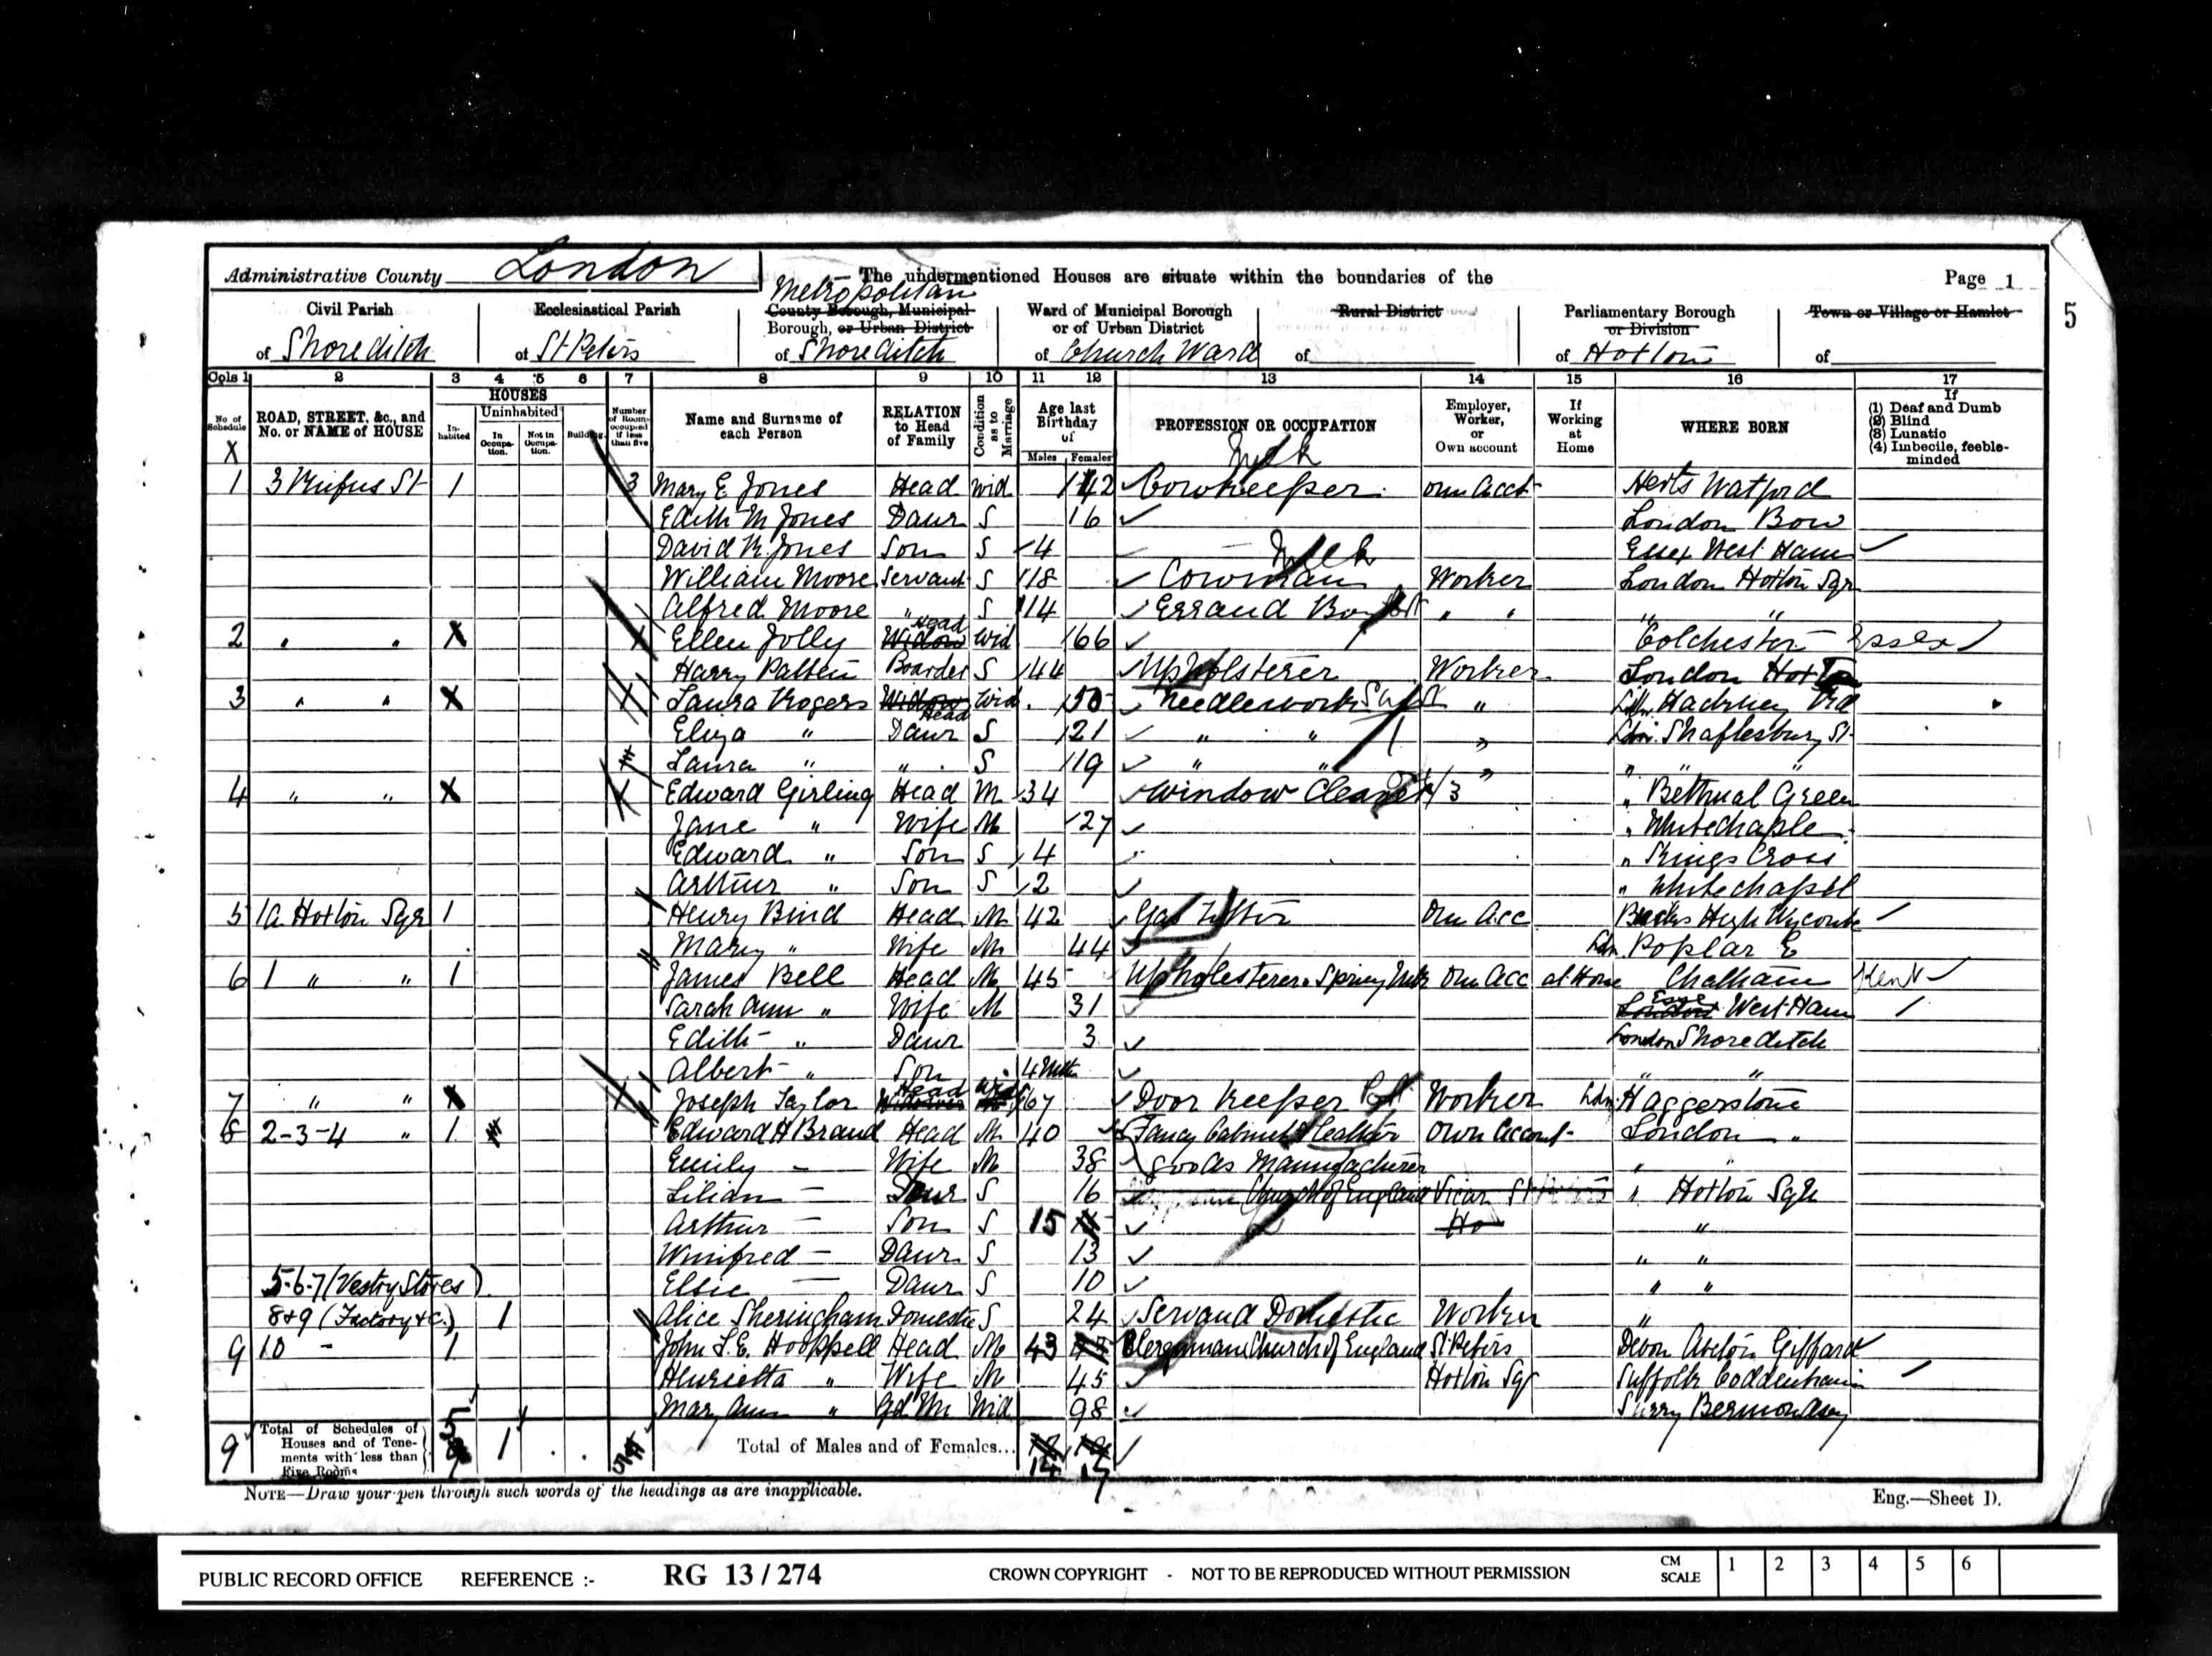 Administrative County London
The undermentioned Houses are situate within the boundaries of the
Page 1
5
Civil Parish of Shoreditch
Ecclesiastical Parish of St Peters
Metropolitan County Borough, Municipal Borough, or Urban District of Shoreditch
Ward of Municipal Borough or of Urban District of Church Ward
Rural District of
Parliamentary Borough or Division of Hoxton
Town or Village or Hamlet of
Cols 1 2 3 4 5 6 7 8 9 10 11 12 13 14 15 16 17
No of Schedule
ROAD, STREET, &c., and No. or NAME of HOUSE
HOUSES
Inhabited
Uninhabited
In Occupation.
Not in Occupation.
Building.
Number of Rooms occupied if less than five
Name and Surname of each Person
RELATION to Head of Family
Condition as to Marriage
Age last Birthday of
Males Females
PROFESSION OR OCCUPATION
Employer, Worker, or Own account
If Working at Home
WHERE BORN
If
(1) Deaf and Dumb
(2) Blind
(3) Lunatic
(4) Imbecile, feeble-minded
X
Milk
1 3 Rufus St 1 3 Mary E Jones Head Wid 42 Cowkeeper Own Acct Herts Watford
Edith M Jones Daur S 16 London Bow
David R Jones Son S 4 Essex West Ham
Milk
William Moore Servant S 18 Cowman Worker London Hoxton Sqr
Alfred Moore " S 14 Errand Boy " " " "
2 " " X Ellen Jolly Widow Head Wid 66 Colchester Essex
Harry Patten Boarder S 44 Upholsterer Worker London Hoxton
3 " " X Laura Rogers Widow Head Wid 50 Needlework " Ldn. Hackney Rd
Eliza " Daur S 21 " " " Ldn. Shaftesbury St
Laura " " S 19 " " " " " "
4 " " X Edward Girling Head M 34 Window Cleaner " Bethnal Green
Jane " Wife M 27 " Whitechaple
Edward " Son S 4 " Kings Cross
Arthur " Son S 2 " Whitechapel
5 1a Hoxton Sqr 1 Henry Bind Head M 42 Gas Fitter Own Acc Bucks High Wycombe
Mary " Wife M 44 Ldn Poplar E
6 1 " " 1 James Bell Head M 45 Upholesterer Spring Mtr Own Acc at Home Chatham Kent
Sarah Ann " Wife M 31 London Essex West Ham
Edith " Daur 3 London Shoreditch
Albert " Son 4 Mths " "
7 " " X Joseph Taylor Head 67 Door Keeper Worker Ldn. Haggerstone
8 2-3-4 " 1 Edward H Brand Head M 40 Fancy Cabinet & Leather Own Account London "
Emily - Wife M 38 goods Manufacturer " "
Lilian - Daur S 16 Church of England Vicar St Peters " Hoxton Sqr
Arthur - Son S 15 Ho "
Winifred - Daur S 13 " "
5-6-7 (Vestry Stores) Elsie - Daur S 10 " "
8+9 (Factory &c.) 1 Alice Sheringham Domestic S 24 Servand Domestic Worker "
9 10 - 1 John L. E. Hooppell Head M 43 Clergyman Church of England St. Peters Devon Aveton Giffard
Henrietta " Wife M 45 Hoxton Sq Suffolk Coddenham
Mary Ann " Gd Mr Wid 98 Surry Bermondsey
9 Total of Schedules of Houses and of Tenements with less than Five Rooms 5 1
Total of Males and of Females... 14 17
NOTE—Draw your pen through such words of the headings as are inapplicable.
Eng.—Sheet D.
PUBLIC RECORD OFFICE REFERENCE :- RG 13 / 274 CROWN COPYRIGHT - NOT TO BE REPRODUCED WITHOUT PERMISSION CM SCALE 1 2 3 4 5 6